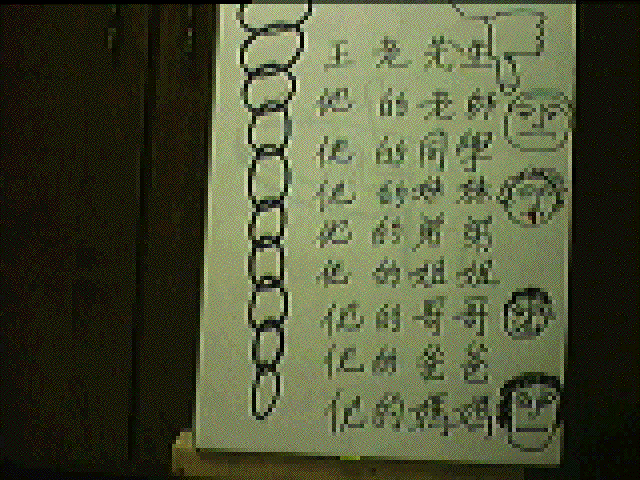 王老先生
他的老師
他的同學
他的妹妹
他的弟弟
他的姐姐
他的哥哥
他的爸爸
他的媽媽